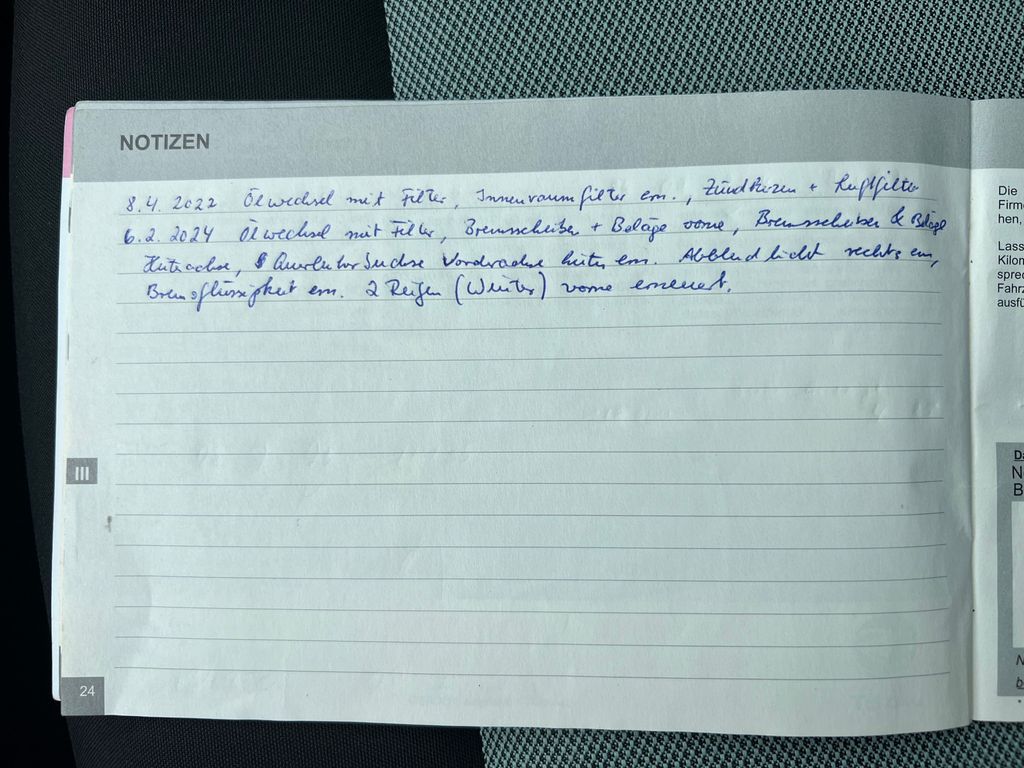 NOTIZEN
8.4. 2022 Ölwechsel mit Filter, Innenraumfilter ern., Zündkerzen + Luftfilter
6.2. 2024 Ölwechsel mit Filter, Bremsscheiben + Beläge vorne, Bremsscheiben & Beläge
Hinterachse, Querlenkerbuchse Vorderachse hinten ern. Abblendlicht rechts ern,
Bremsflüssigkeit ern. 2 Reifen (Winter) vorne erneuert.
III
24
Die
Firme
hen,
Lass
Kilom
spred
Fahrz
ausfü
Da
N
B
N
b